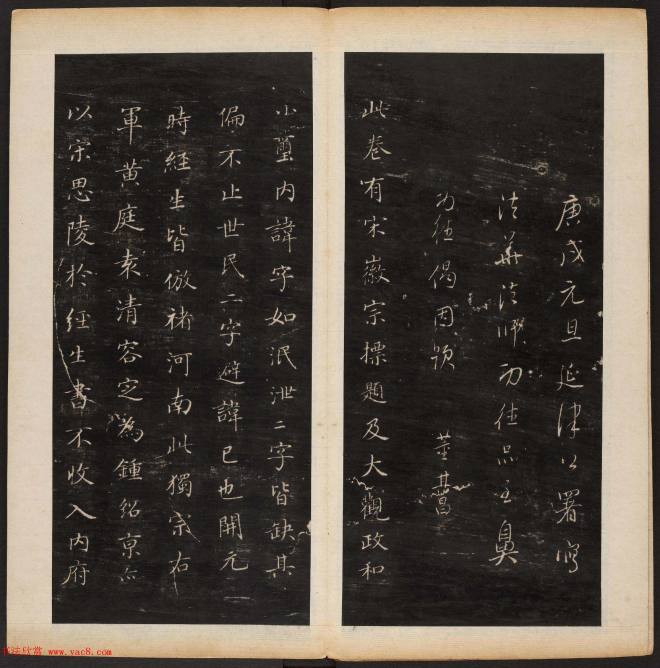 庚戌元旦延津公署寫
法華法師功德品至鼻
功德偈因題
董其昌
此卷有宋徽宗摽題及大觀政和
小璽内諱字如泯泄二字皆缺其
偏不止世民二字避諱已也開元
時經生皆倣褚河南此獨宗右
軍黄庭袁清容定為鍾紹京亦
以宋思陵於經生書不收入内府
书法欣赏 www.yac8.com